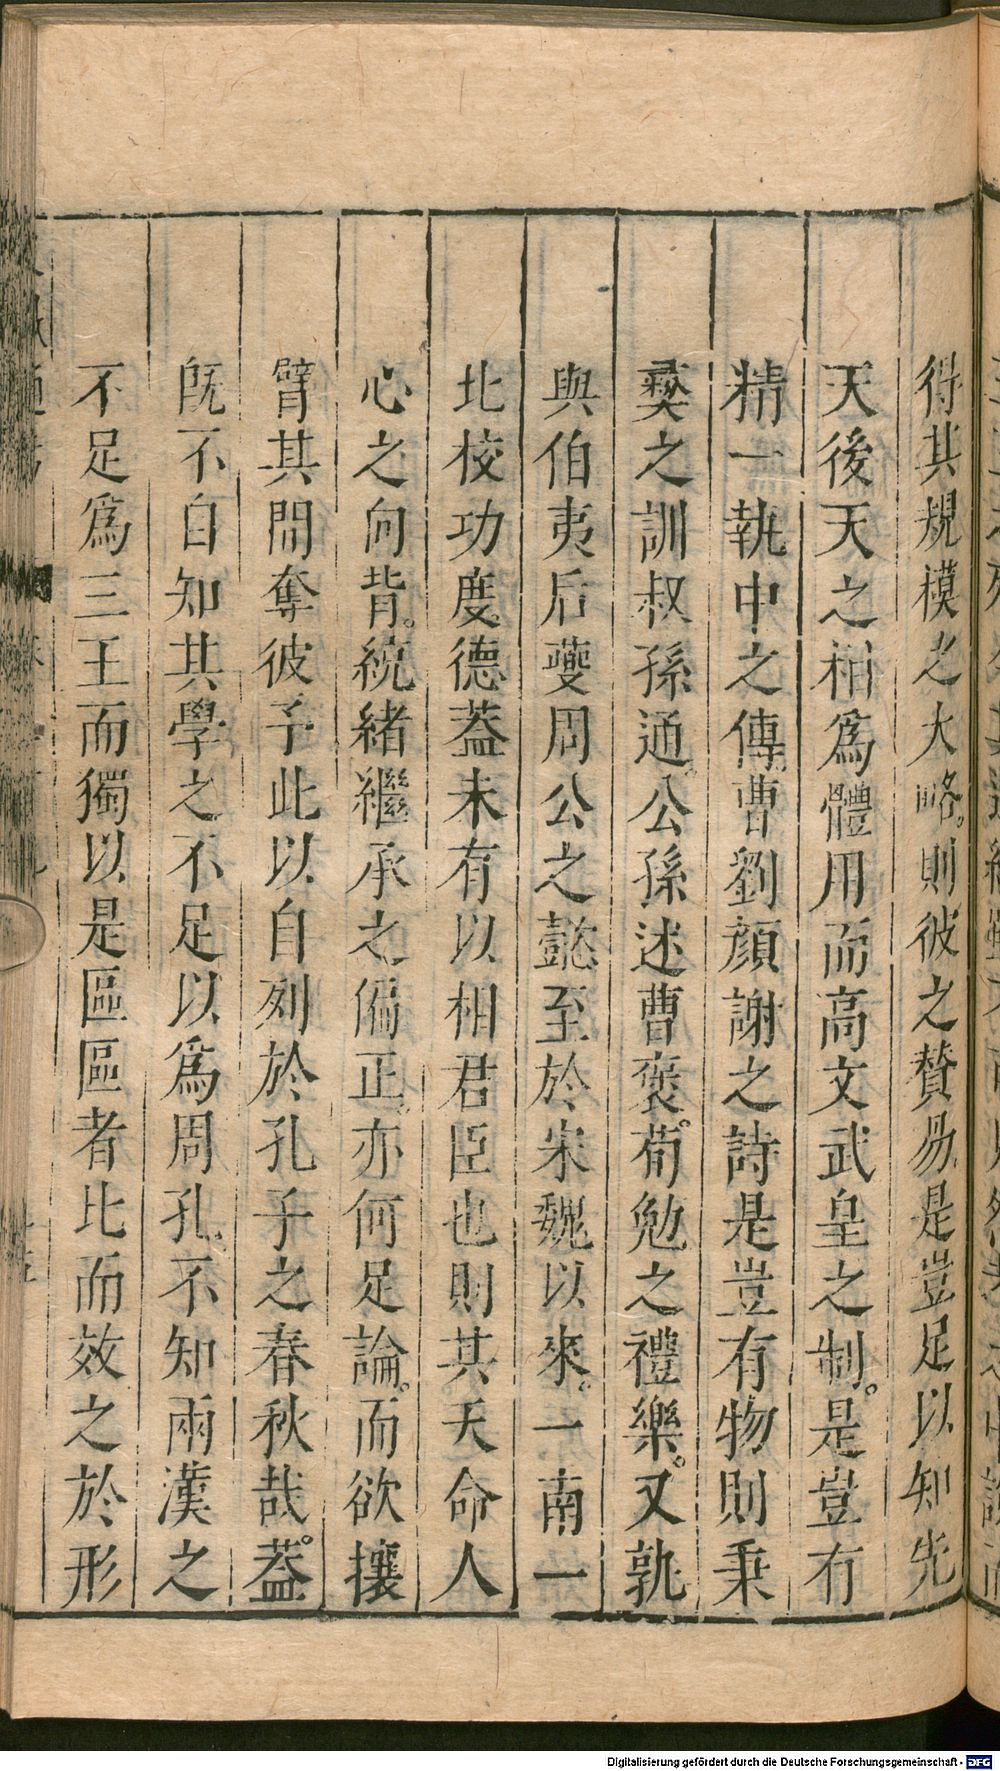 得其規模之大略。則彼之贊易。是豈足以知先
天後天之相爲體用。而高文武皇之制。是豈有
精一執中之傳。曹劉顏謝之詩。是豈有物則秉
彝之訓。叔孫通。公孫述。曹褒。荀勉之禮樂。又孰
與伯夷后夔周公之懿。至於宋魏以來。一南一
北。校功度德。蓋未有以相君臣也。則其天命人
心之向背。統緒繼承之偏正。亦何足論。而欲攘
臂其間。奪彼予此。以自列於孔子之春秋哉。蓋
旣不自知其學之不足以爲周孔。不知兩漢之
不足爲三王。而獨以是區區者比而效之於形
Digitalisierung gefördert durch die Deutsche Forschungsgemeinschaft - DFG